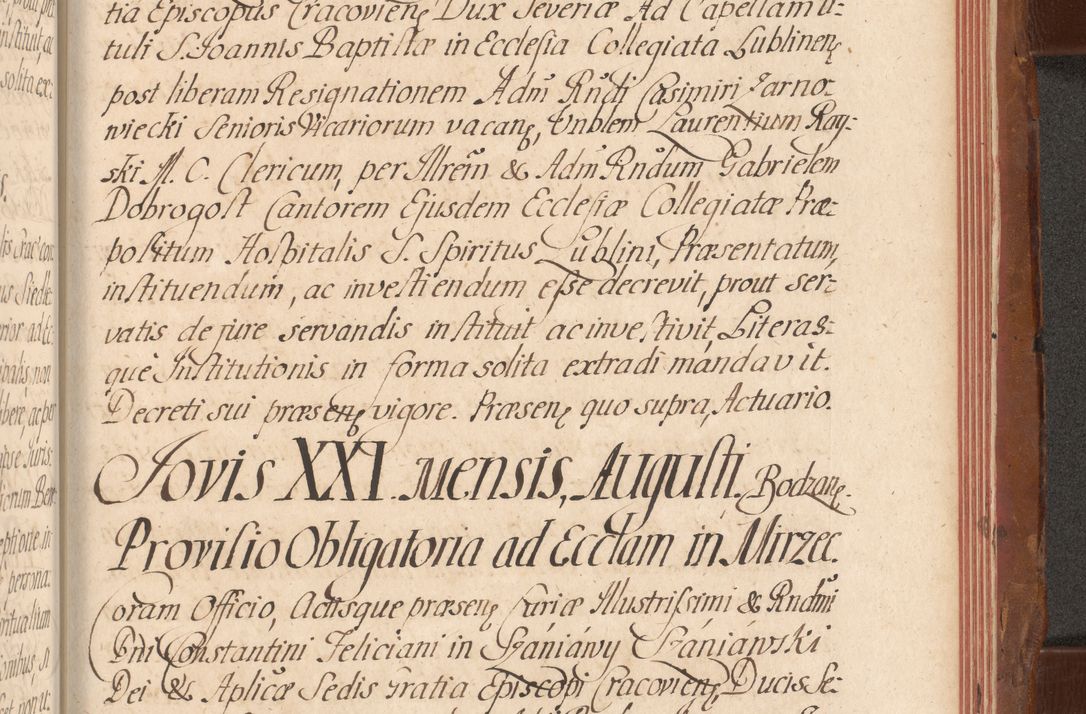 tia Episcopus Cracovienȩ Dux Severiæ Ad Capellam ti-
tuli S. Joannis Baptistæ in Ecclesia Collegiata Lublinenȩ
post liberam Resignationem Adm̃ Rndi Casimiri Żarno-
wiecki Senioris Vicariorum vacanȩ, Vnblem Laurentium Ray-
ski M. C. Clericum, per Illrem̃ & Adm̃ Rndum Gabrielem
Dobrogost Cantorem Ejusdem Ecclesiæ Collegiatæ Præ-
positum Hospitalis S. Spiritus Lublini, Præsentatum,
instituendum, ac investiendum esse decrevit, prout ser-
vatis de jure servandis instituit ac investivit, Literas-
que Institutionis in forma solita extradi mandavit.
Decreti sui præsenȩ vigore. Præsenȩ quo supra, Actuario.
Jovis XXI. mensis, Augusti. Bodzanȩ.
Provisio Obligatoria ad Ecclam in Mirzec.
Coram Officio, Actisque præsenȩ Curiæ Illustrissimi & Rndmi
Dni Constantini Feliciani in Szániáwy Szániáwski
Dei & Aplicæ Sedis gratia Episcopi Cracovienȩ, Ducis Se-